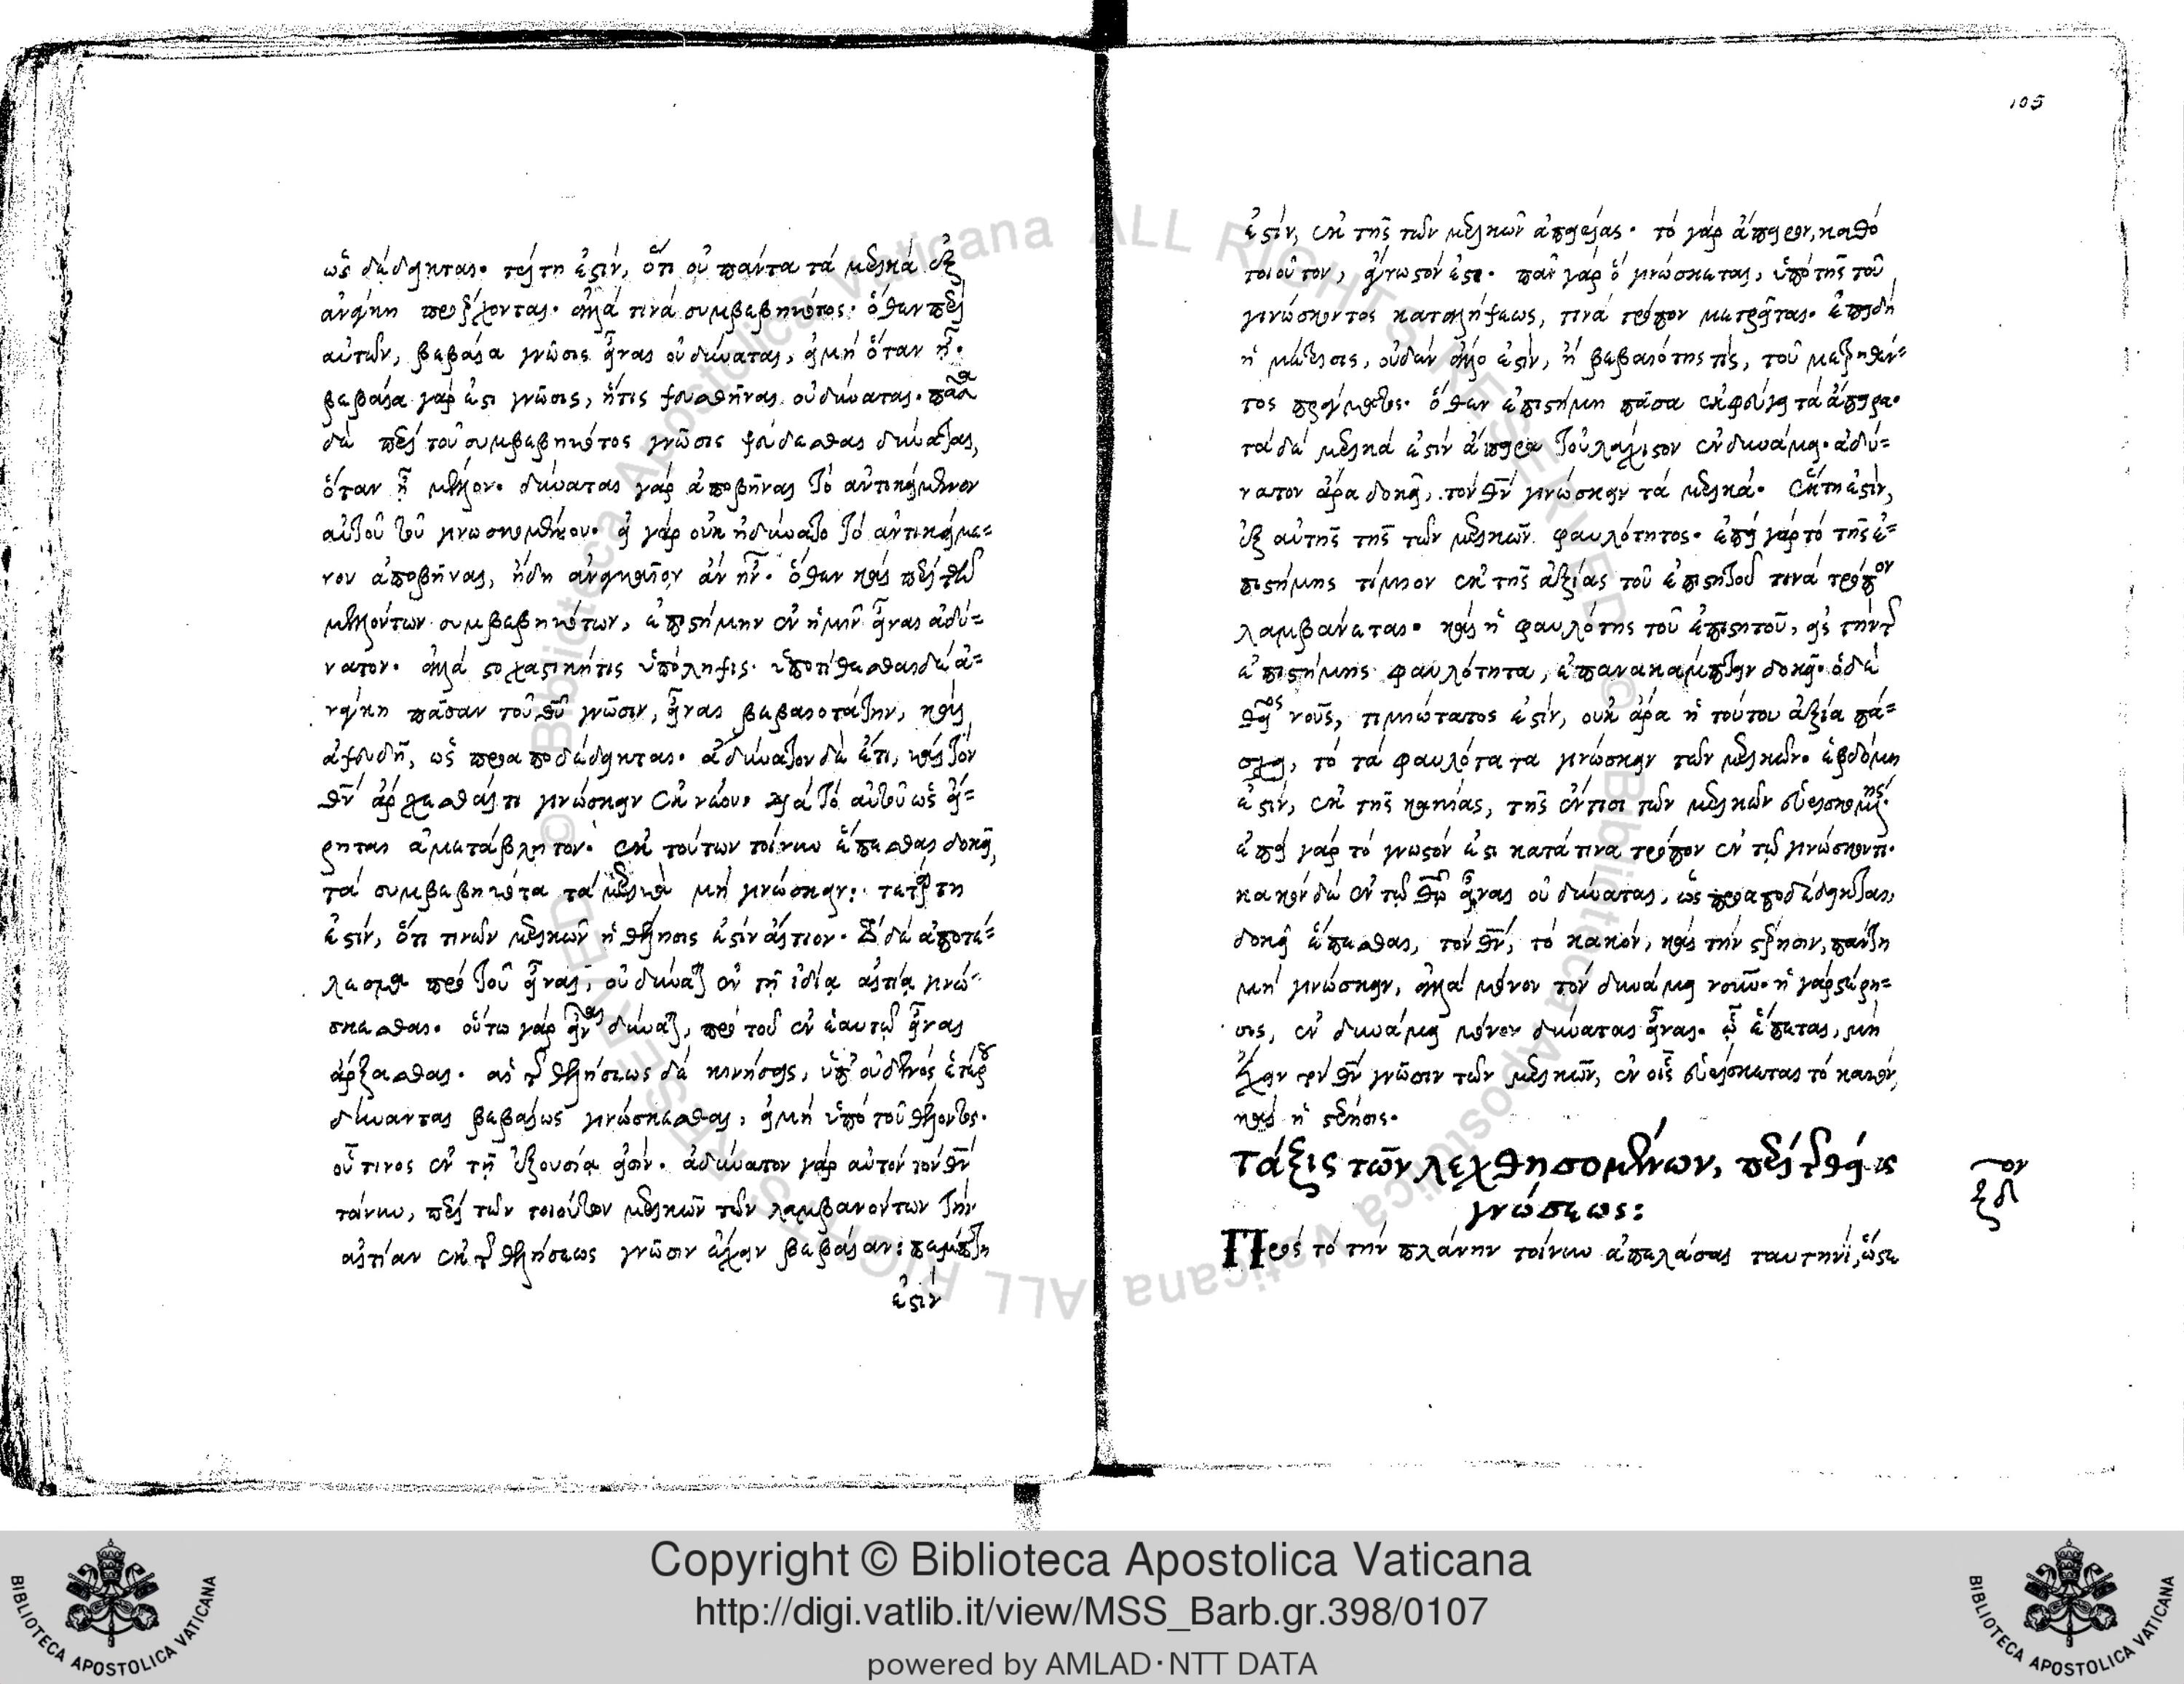 105
ὡς δέδεικται. τρίτη ἐστίν, ὅτι οὐ πάντα τὰ μερικὰ ἐξ
ἀνάγκης προέρχονται. ἀλλά τινα συμβεβηκότως· ὅθεν περὶ
αὐτῶν, βεβαία γνῶσις εἶναι οὐ δύναται, εἰ μὴ ὅταν ᾖ.
βεβαία γάρ ἐστι γνῶσις, ἥτις ψευσθῆναι οὐ δύναται. πᾶσα
δὲ περὶ τοῦ συμβεβηκότος γνῶσις ψεύδεσθαι δύναται,
ὅταν ᾖ μέλλον. δύναται γὰρ ἀποβῆναι τὸ ἀντικείμενον
αὐτοῦ τοῦ γινωσκομένου. εἰ γὰρ οὐκ ἠδύνατο τὸ ἀντικείμε=
νον ἀποβῆναι, ἤδη ἀναγκαῖον ἂν ἦν. ὅθεν καὶ περὶ τῶν
μελλόντων συμβεβηκότων, ἐπιστήμην ἐν ἡμῖν εἶναι ἀδύ=
νατον. ἀλλὰ στοχαστική τις ὑπόληψις. ὑποτίθεσθαι δὲ ἀ=
νάγκη πᾶσαν τοῦ θεοῦ γνῶσιν, εἶναι βεβαιοτάτην, καὶ
ἀψευδῆ, ὡς προαποδέδεικται. ἀδύνατον δὲ ἔτι, καὶ τὸν
θεὸν ἄρχεσθαί τι γινώσκειν ἐκ νέου. διὰ τὸ αὐτοῦ ὡς εἴ=
ρηται ἀμετάβλητον. ἐκ τούτων τοίνυν ἕπεσθαι δοκεῖ,
τὰ συμβεβηκότα τὰ μερικὰ μὴ γινώσκειν: τετάρτη
ἐστίν, ὅτι τινῶν μερικῶν ἡ θέλησις ἐστὶν αἴτιον. τὸ δὲ ἀποτέ=
λεσμα πρὸ τοῦ εἶναι, οὐ δύναται ἐν τῇ ἰδίᾳ αἰτίᾳ γινώ=
σκεσθαι. οὕτω γὰρ εἶναι δύναται, πρὸ τοῦ ἐν ἑαυτῷ εἶναι
ἄρξασθαι. αἱ τῆς θελήσεως δὲ κινήσεις, ὑπ' οὐδενὸς ἑτέρου
δύνανται βεβαίως γινώσκεσθαι, εἰ μὴ ὑπὸ τοῦ θέλοντος.
οὗ τινος ἐν τῇ ἐξουσίᾳ εἰσίν. ἀδύνατον γὰρ αὐτὸν τὸν θεὸν
τοίνυν, περὶ τῶν τοιούτων μερικῶν τῶν λαμβανόντων τὴν
αἰτίαν ἐκ τῆς θελήσεως γνῶσιν ἔχειν βεβαίαν: πέμπτη
ἐστίν
ἐστίν, ἐκ τῆς τῶν μερικῶν ἀπειρίας. τὸ γὰρ ἄπειρον, καθὸ
τοιοῦτον, ἄγνωστόν ἐστι. πᾶν γὰρ ὃ γινώσκεται, ὑπὸ τῆς τοῦ
γινώσκοντος καταλήψεως, τινὰ τρόπον μετρεῖται. ἐπειδὴ
ἡ μέτρησις, οὐδὲν ἄλλο ἐστίν, ἢ βεβαιότης τίς, τοῦ μετρηθέν=
τος πράγματος. ὅθεν ἐπιστήμη πᾶσα ἐκφεύγει τὰ ἄπειρα.
τὰ δὲ μερικά ἐστιν ἄπειρα τοὐλάχιστον ἐν δυνάμει. ἀδύ=
νατον ἄρα δοκεῖ, τὸν θεὸν γινώσκειν τὰ μερικά. ἕκτη ἐστίν,
ἐξ αὐτῆς τῆς τῶν μερικῶν φαυλότητος. ἐπεὶ γὰρ τὸ τῆς ἐ=
πιστήμης τίμιον ἐκ τῆς ἀξίας τοῦ ἐπιστητοῦ τινὰ τρόπον
λαμβάνεται. καὶ ἡ φαυλότης τοῦ ἐπιστητοῦ, εἰς τὴν τῆς
ἐπιστήμης φαυλότητα, ἐπανακάμπτειν δοκεῖ. ὁ δὲ
θεῖος νοῦς, τιμιώτατος ἐστίν, οὐκ ἄρα ἡ τούτου ἀξία πά=
σχει, τὸ τὰ φαυλότατα γινώσκειν τῶν μερικῶν. ἑβδόμη
ἐστίν, ἐκ τῆς κακίας, τῆς ἔν τισι τῶν μερικῶν εὑρισκομένης.
ἐπεὶ γὰρ τὸ γνωστόν ἐστι κατά τινα τρόπον ἐν τῷ γινώσκοντι.
κακὸν δὲ ἐν τῷ θεῷ εἶναι οὐ δύναται, ὡς προαποδέδεικται,
δοκεῖ ἕπεσθαι, τὸν θεὸν, τὸ κακόν, καὶ τὴν στέρησιν, πάντη
μὴ γινώσκειν, ἀλλὰ μόνον τὸν δυνάμει νοῦν. ἡ γὰρ στέρη=
σις, ἐν δυνάμει μόνον δύναται εἶναι. ᾧ ἕπεται, μὴ
ἔχειν τὸν θεὸν γνῶσιν τῶν μερικῶν, ἐν οἷς εὑρίσκεται τὸ κακόν,
καὶ ἡ στέρησις.
τάξις τῶν λεχθησομένων, περὶ τῆς θείας
γνώσεως:
Πρὸς τὸ τὴν πλάνην τοίνυν ἀπελάσαι ταυτηνί, ὥστε